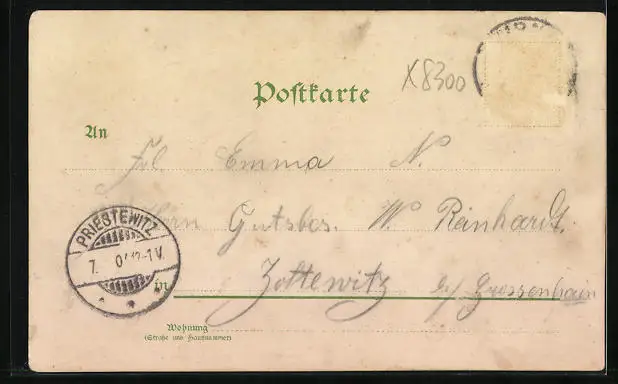 X8300
Postkarte
An
Frl Emma N.
Herrn Gutsbes. W. Reinhardt.
PRIESTEWITZ
7. 12-1V.
in
Zottewitz b/ Grossenhain
Wohnung
(Straße und Hausnummer)